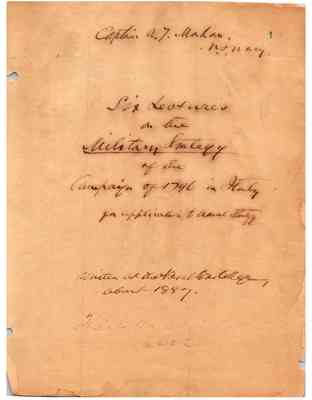 Captain A. T. Mahan.
U.S. Navy.
Six Lectures
on the
Military Strategy
of the
Campaign of 1796 in Italy
for application to naval strategy
Written at the Naval War College,
about 1887.